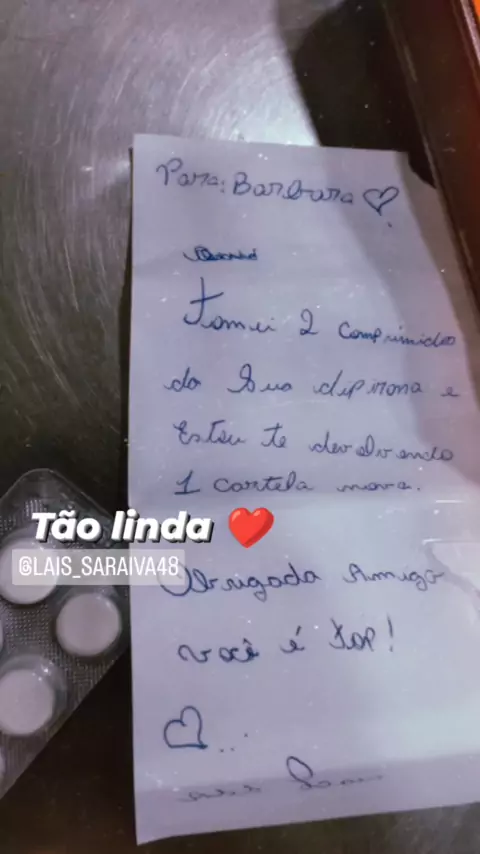 Para: Barbara ♡
Tomei 2 comprimidos
da Sua dipirona e
Estou te devolvendo
1 cartela nova.
Tão linda ❤️
@LAIS_SARAIVA48
Obrigada Amiga
você é TOP!
♡...